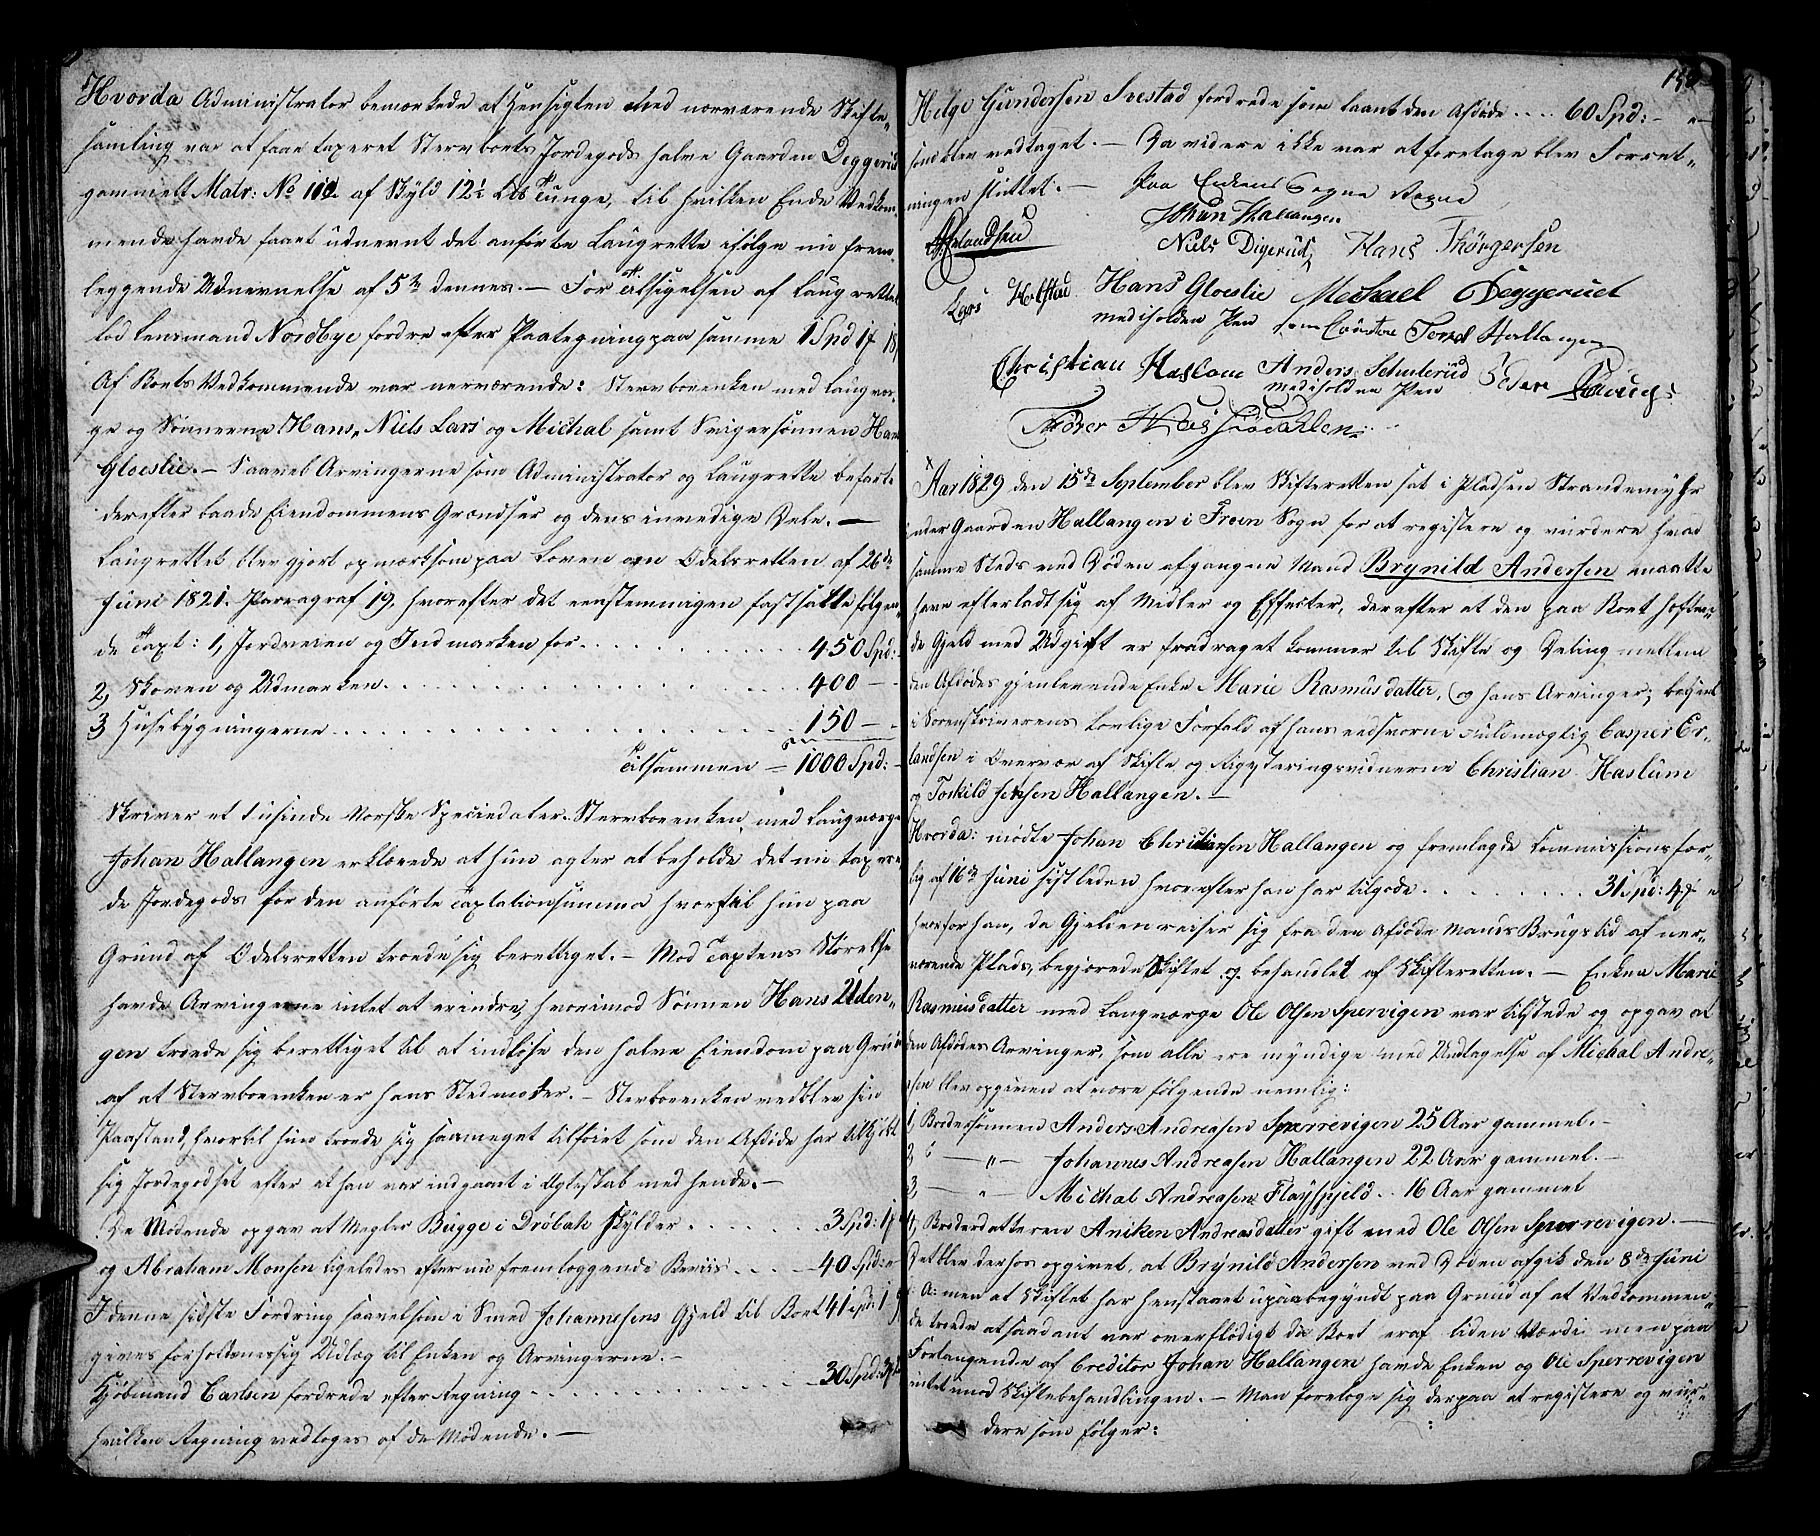 Hvorda Administrator bemærkede at Hensigten med nærværende Skifte„
samling var at faae taxeret Stervboets Jordegods halve Gaarden Deggerud
gammelt Matr: No 110 af Skyld 12½ Lbs Tunge, til hvilken Ende Vedkom„
mende havde faaet udnevnt det anførte Laugrette ifølge nu frem„
leggende Udnevnelse af 5te dennes. — For Tilsigelsen af Laugrettet
lod Lensmand Nordbye fordre efter Paategning paa samme 1 Spd 1 18
Af Boets Vedkommende var nerværende: Stervboenken med Laugvær„
ge og Sønnerne Hans, Niels Lars og Michal samt Svigersønnen Hans
Gloeslie. — Saavel Arvingerne som Administrator og Laugrette befarte
derefter baade Eiendommens Grændser og dens invendige Dele. —
Laugrettet blev gjort opmerksom paa Loven om Odelsretten af 26de
Juni 1821. Paragraf 19, hvorefter det eenstemmigen fastsatte følgen„
de Taxt: 1, Jordveien og Indmarken for . . . 450 Spd: -
2, Skoven og Udmarken . . . 400 — -
3, Husebygningerne . . . 150 — -
Tilsammen — 1000 Spd: -
Skriver et tusinde Norske Speciedaler. Stervboenken med Laugværge
Johan Hallangen erklærede at hun agter at beholde det nu taxere
de Jordegods for den anførte Taxtationsumma hvortil hun paa
Grund af Odelsretten troede sig berettiget. — Mod Taxtens Størelse
havde Arvingerne intet at erindre, hvorimod Sønnen Hans Uden„
gen troede sig berettiget til at indløse den halve Eiendom paa Grund
af at Stervboenken er hans Stedmoder. — Stervboenken vedblev sin
Paastand, hvortil hun troede sig saameget tilføiet som den Afdøde har tilkjøbt
sig Jordegodset efter at han var indgaaet i Egteskab med hende. —
De Mødende opgav at Megler Bugge i Drøbak skylder . . . 3 Spd: 1
og Abraham Monsen ligeledes efter nu fremleggende Beviis . . . 40 Spd: „
I denne sidste Fordring saavelsom i Smed Johannesens Gjeld til Boet 41 Spd: 1
gives forholdsmessig Udlæg til Enken og Arvingerne. —
Kjøbmand Carlsen fordrede efter Regning . . . 30 Spd:
hvilken Regning vedtoges af de Mødende. —
Helge Gundersen Srestad fordrede som laant den Afdøde . . . 60 Spd: - „ -
som blev vedtaget. — Da videre ikke var at foretage blev Forret„
ningen sluttet. — Paa Enkens Vegne
Johan Hallangen
Erlandsen Niels Digerud, Hans Thørgersen
Lars Holstad Hans Gloeslie Mechael Deggerud
med iholden Pen
Hallangen
Christian Haslom Anders Schulerüd Peder
med iholden Pen
Aar 1829 den 15de September blev Skifteretten sat i Pladsen Strandemyhr
under Gaarden Hallangen i Froen Sogn for at registere og vurdere hvad
samme Steds ved Døden afgangne Mand Brynild Andersen maatte
have efterladt sig af Midler og Effecter, derefter at den paa Boet heften„
de Gjeld med Udgift er fradraget kommer til Skifte og Deling mellem
den Afdødes gjenlevende Enke Marie Rasmusdatter, og hans Arvinger; betjent
i Sorenskriverens lovlige Forfald af hans eedsvorne Fuldmægtig Casper Er„
landsen i Overvær af Skifte og Registeringsvidnerne Christian Haslum
og Torkild Jensen Hallangen. —
Hvorda: mødte Johan Christiansen Hallangen og fremlagde Commissionsfor„
lig af 16de Juni sistleden hvorefter han har tilgode . . . 31 Spd: 4
hvorfor han, da Gjelden reiser sig fra den Afdøde Mands Brugstid af ner„
værende Plads, begjærede Skiftet og behandlet af Skifteretten. — Enken Marie
Rasmusdatter med Laugværge Ole Olsen Spervigen var tilstede og opgav at
den Afdødes Arvinger, som alle ere myndige med Undtagelse af Michal Andre„
sen blev opgiven at være følgende nemlig:
1, Brodersønnen Anders Andreasen Sperrevigen 25 Aar gammel. —
2, — „ — Johannes Andreasen Hallangen 22 Aar gammel. —
3, — „ — Michal Andreasen Flaysjeld . . 16 Aar gammel
4, Broderdatteren Aniken Andreasdatter gift med Ole Olsen Sperrevigen. —
Det blev derhos opgivet, at Brynild Andersen ved Døden afgik den 8de Juni
f: A: men at Skiftet har henstaaet upaabegyndt paa Grund af at Vedkommen„
de troede at saadant var overflødigt da Boet er af liden Værdi men paa
Forlangende af Creditor Johan Hallangen havde Enken og Ole Sperrevigen
intet mod Skiftebehandlingen. — Man foretoge sig derpaa at registere og vur„
dere som følger: